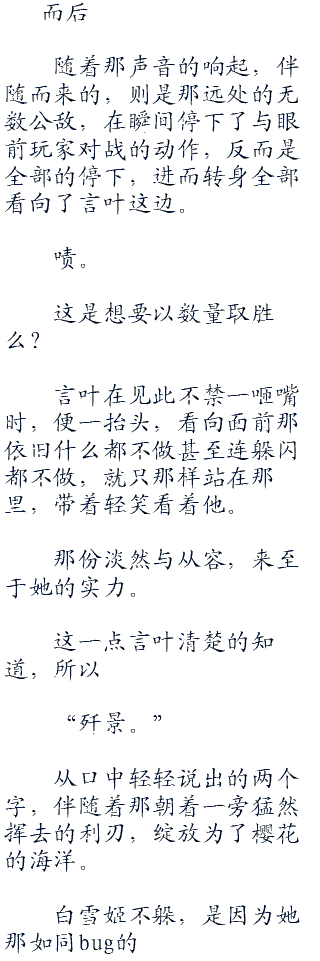 而后
随着那声音的响起，伴
随而来的，则是那远处的无
数公敌，在瞬间停下了与眼
前玩家对战的动作，反而是
全部的停下，进而转身全部
看向了言叶这边。
啧。
这是想要以数量取胜
么？
言叶在见此不禁一咂嘴
时，便一抬头，看向面前那
依旧什么都不做甚至连躲闪
都不做，就只那样站在那
里，带着轻笑看着他。
那份淡然与从容，来至
于她的实力。
这一点言叶清楚的知
道，所以
“歼景。”
从口中轻轻说出的两个
字，伴随着那朝着一旁猛然
挥去的利刃，绽放为了樱花
的海洋。
白雪姬不躲，是因为她
那如同bug的